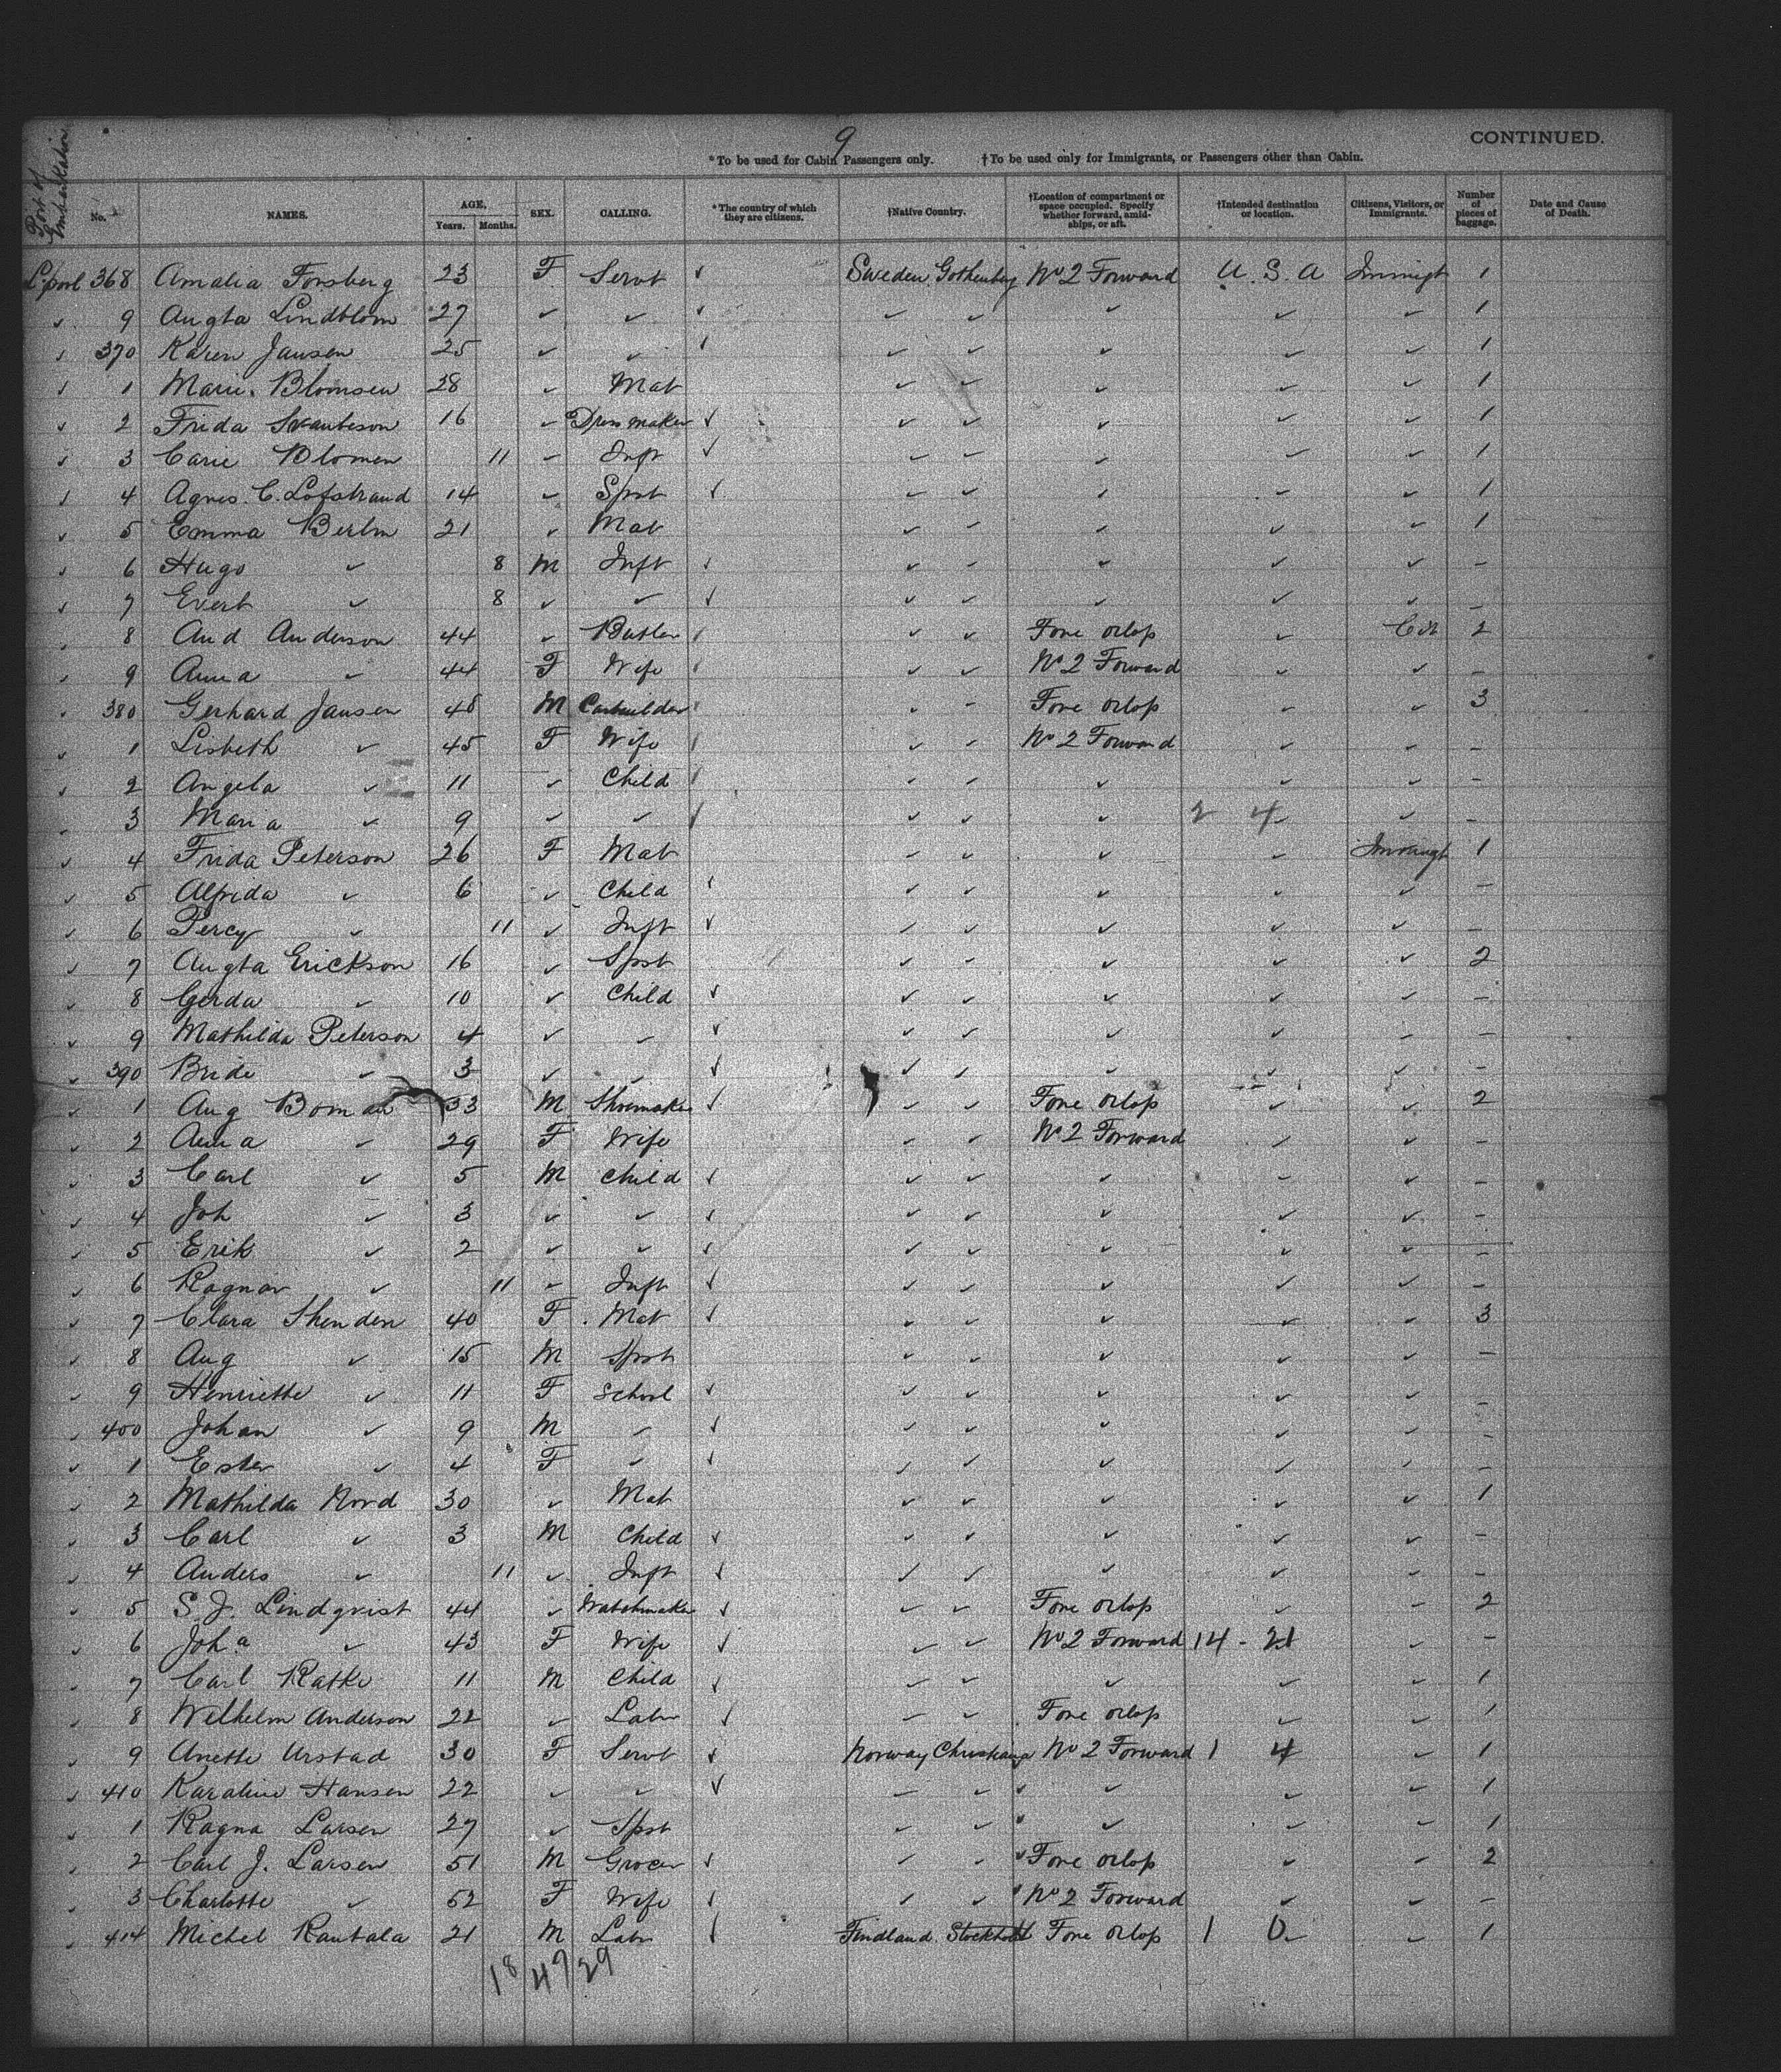 9
CONTINUED.
*To be used for Cabin Passengers only. †To be used only for Immigrants, or Passengers other than Cabin.
Port of Embarkation No. NAMES. AGE. Years. Months. SEX. CALLING. *The country of which they are citizens. †Native Country. †Location of compartment or space occupied. Specify whether forward, amidships, or aft. †Intended destination or location. Citizens, Visitors, or Immigrants. Number of pieces of baggage. Date and Cause of Death.
L'pool 368 Amalia Forsberg 23 F Servt Sweden Gothenbg No 2 Forward U.S.A Immigt 1
9 Augta Lindblom 27 1
370 Karen Jansen 25 1
1 Marie Blomsen 28 Mat 1
2 Frida Svanteson 16 Dressmaker 1
3 Carie Blomen 11 Inft 1
4 Agnes. C. Lofstrand 14 Spst 1
5 Emma Berlin 21 Mat 1
6 Hugo 8 M Inft -
7 Evert 8 -
8 And Anderson 44 Butler Fore orlop Cit 2
9 Anna 44 F Wife No 2 Forward -
380 Gerhard Jansen 48 M Carbuilder Fore orlop 3
1 Lisbeth 45 F Wife No 2 Forward -
2 Angela 11 Child -
3 Maria 9 2 4 -
4 Frida Peterson 26 F Mat Immigt 1
5 Alfrida 6 Child -
6 Percy 11 Inft -
7 Augta Erickson 16 Spst 2
8 Gerda 10 Child -
9 Mathilda Peterson 4 -
390 Bride 3 -
1 Aug Boman 33 M Shoemaker Fore orlop 2
2 Anna 29 F Wife No 2 Forward -
3 Carl 5 M Child -
4 Joh 3 -
5 Erik 2 -
6 Ragnar 11 Inft -
7 Clara Shenden 40 F Mat 3
8 Aug 15 M Spst -
9 Henriette 11 F School -
400 Johan 9 M -
1 Ester 4 F -
2 Mathilda Nord 30 Mat 1
3 Carl 3 M Child -
4 Anders 11 Inft -
5 S. J. Lindqvist 44 Watchmaker Fore orlop 2
6 Joha 43 F Wife No 2 Forward 14 - 21 -
7 Carl Ratke 11 M Child 1
8 Wilhelm Anderson 22 Labr Fore orlop 1
9 Anette Urstad 30 F Servt Norway Christiania No 2 Forward 1 4 1
410 Karaline Hansen 22 1
1 Ragna Larsen 27 Spst 1
2 Carl J. Larsen 51 M Grocer Fore orlop 2
3 Charlotte 52 F Wife No 2 Forward -
414 Michel Rautala 21 M Labr Findland. Stockholm Fore orlop 1 0 1
18 47 29